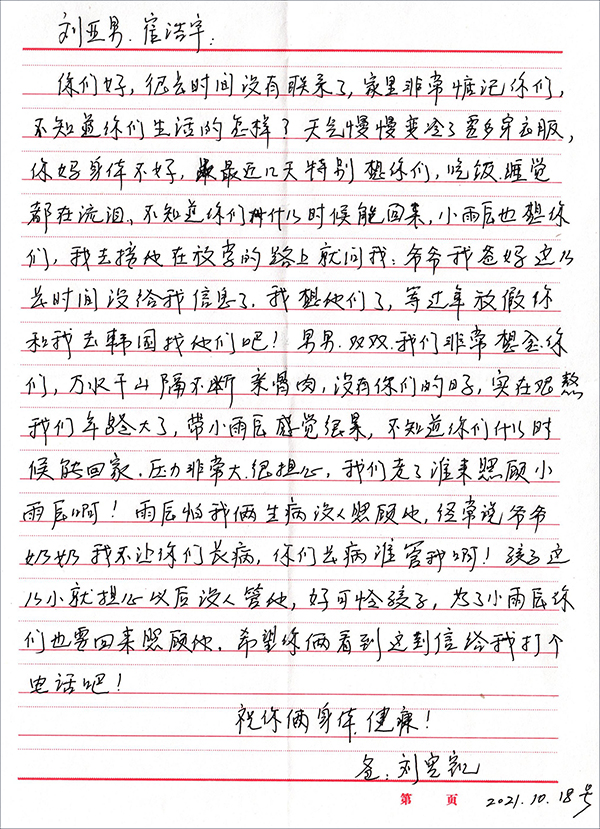 刘亚男.宦浩宇:
你们好,很长时间没有联系了,家里非常惦记你们,
不知道你们生活的怎样?天气慢慢变冷了要多穿衣服,
你妈身体不好,最近几天特别想你们,吃饭.睡觉
都在流泪、不知道你们什么时候能回来,小雨辰也想你
们,我去接他在放学的路上就问我:爷爷我爸妈这么
长时间没给我信息了,我想他们了,等过年放假你
和我去韩国找他们吧!男男.双双.我们非常想念你
们,万水千山隔不断亲骨肉,没有你们的日子,实在难熬
我们年龄大了,带小雨辰感觉很累,不知道你们什么时
候能回家.压力非常大.很担心,我们老了谁来照顾小
雨辰啊!雨辰怕我俩生病没人照顾他,经常说爷爷
奶奶我不让你们长病,你们长病谁管我啊!孩子这
么小就担心以后没人管他,好可怜孩子,为了小雨辰你
们也要回来照顾他.希望你俩看到这封信给我打个
电话吧!
祝你俩身体.健康!
爸:刘
第 页 2021.10.18号